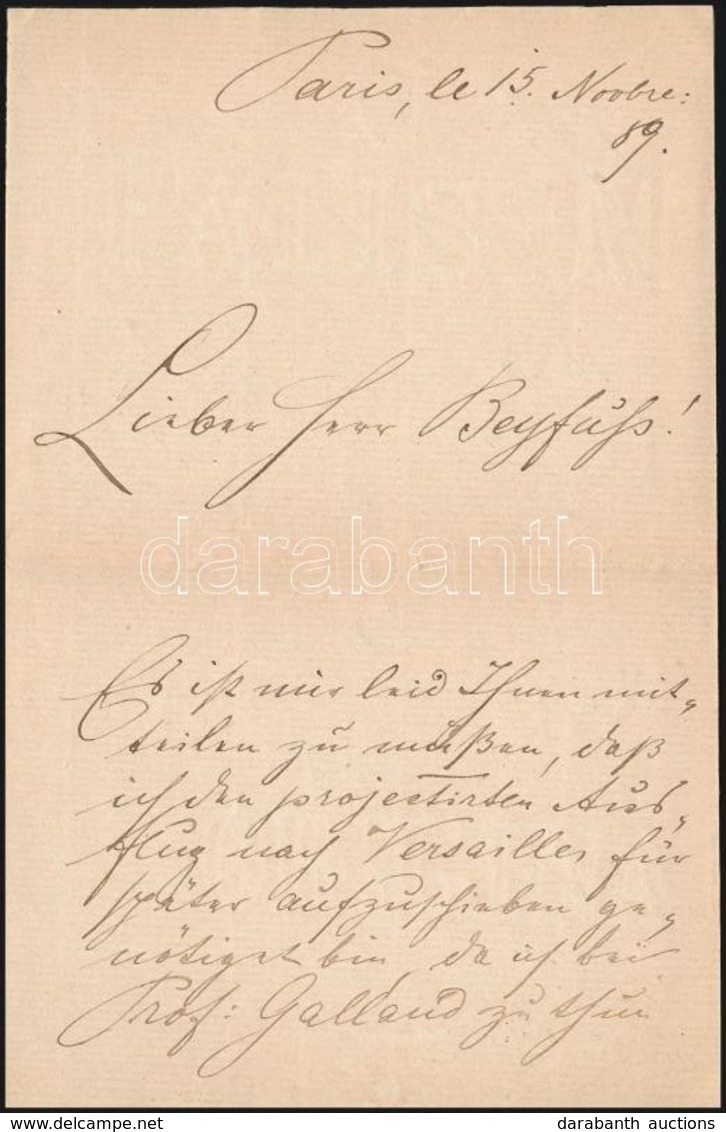 Paris, le 15. Novbre:
89.
Lieber Herr Beyfuß!
darabanth
Es ist mir leid Ihnen mit„
teilen zu müßen, daß
ich den projectirten Aus„
flug nach Versailles für
später aufzuschieben ge„
nötiget bin, da ich bei
Prof: Galland zu thun
www.delcampe.net
darabanth auctions